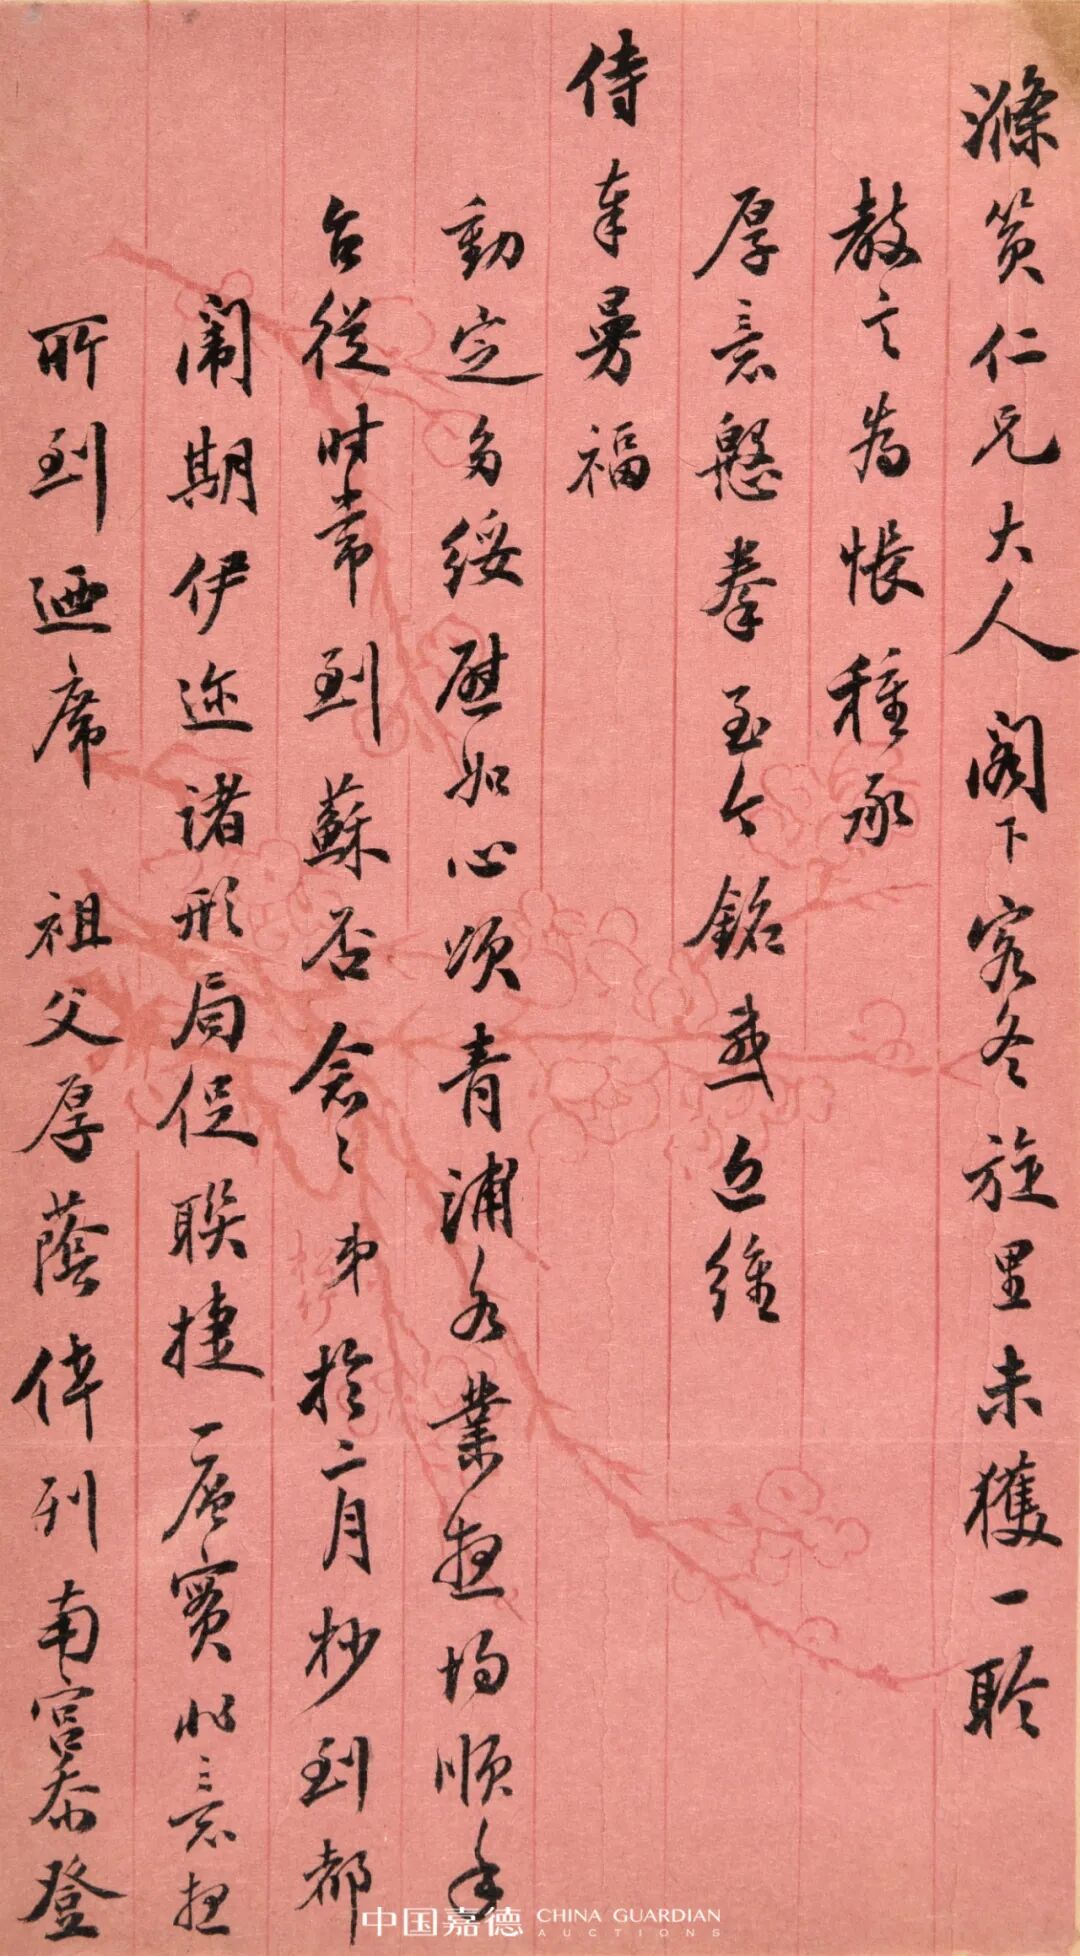 滌箕仁兄大人閣下客冬旋里未獲一聆
教言為悵種承
厚意慇拳至今銘感近維
侍奉曼福
動定多綏慰如心頌青浦各業想均順手
台從時常到蘇否念念弟於二月杪到都
闈期伊邇諸形局促聯捷一層實非意想
所到迺席祖父厚蔭倖列南宮忝登
中国嘉德 CHINA GUARDIAN AUCTIONS